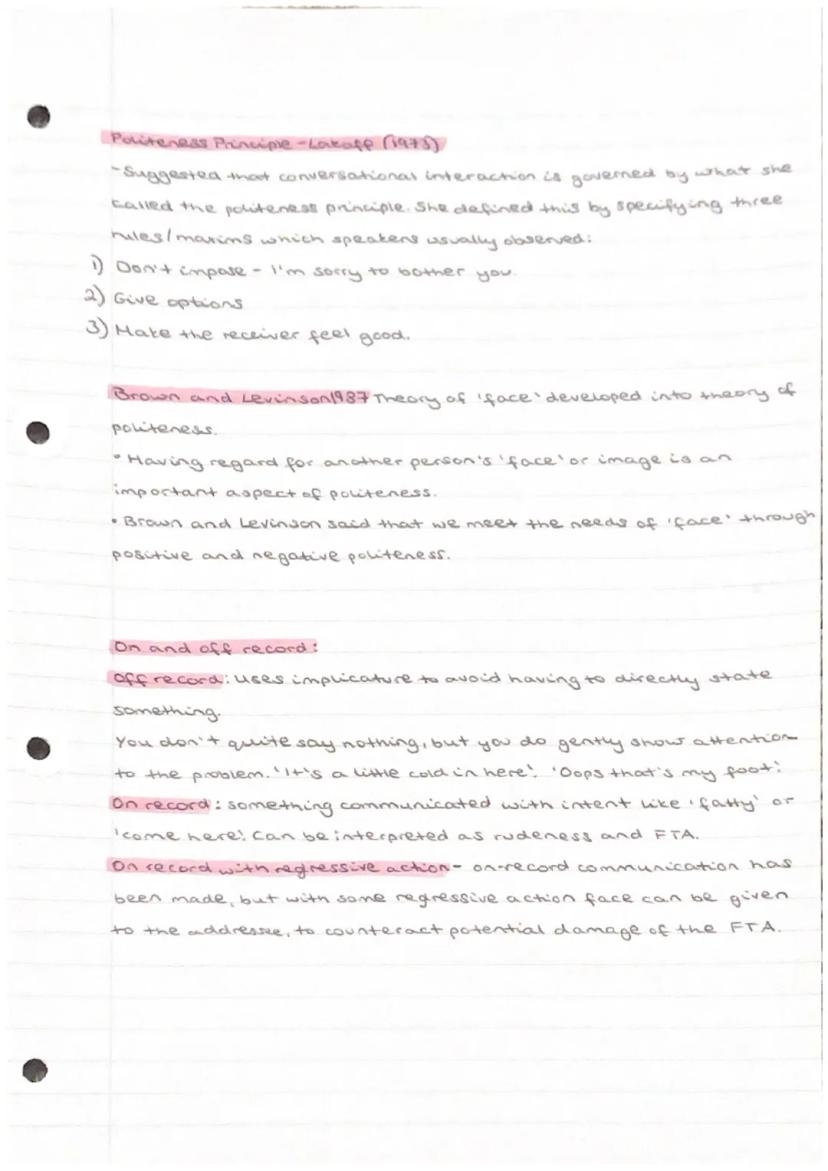 Politeness Principle - Lakoff (1973)
- Suggested that conversational interaction is governed by what she
called the politeness principle. She defined this by specifying three
rules/maxims which speakers usually observed:
1) Don't impose - I'm sorry to bother you.
2) Give options
3) Make the receiver feel good.
Brown and Levinson 1987 Theory of 'face' developed into theory of
politeness.
• Having regard for another person's 'face' or image is an
important aspect of politeness.
• Brown and Levinson said that we meet the needs of 'face' through
positive and negative politeness.
On and off record:
Off record: Uses implicature to avoid having to directly state
something.
You don't quite say nothing, but you do gently show attention
to the problem. 'It's a little cold in here'. 'Oops that's my foot'.
On record: something communicated with intent like 'fatty' or
'come here'. Can be interpreted as rudeness and FTA.
On record with regressive action - on-record communication has
been made, but with some regressive action face can be given
to the addressee, to counteract potential damage of the FTA.